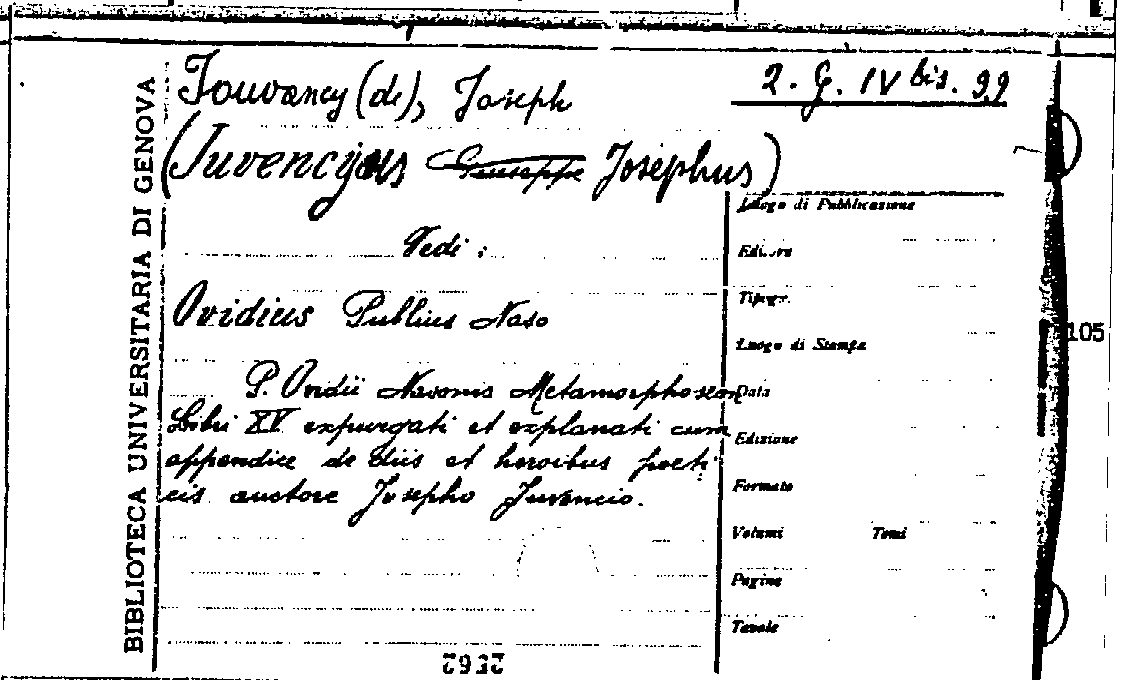 BIBLIOTECA UNIVERSITARIA DI GENOVA
Jouvancy (de), Joseph
2. G. IV bis. 99
(Juvencyus Giuseppe Josephus)
Vedi :
Ovidius Publius Naso
P. Ovidii Nasonis Metamorphoseon
Libri XV expurgati et explanati cum
appendice de diis et heroibus poeti
cis auctore Josepho Juvencio.
Luogo di Pubblicazione
Editore
Tipogr.
Luogo di Stampa
Data
Edizione
Formato
Volumi Tomi
Pagine
Tavole
105
2562